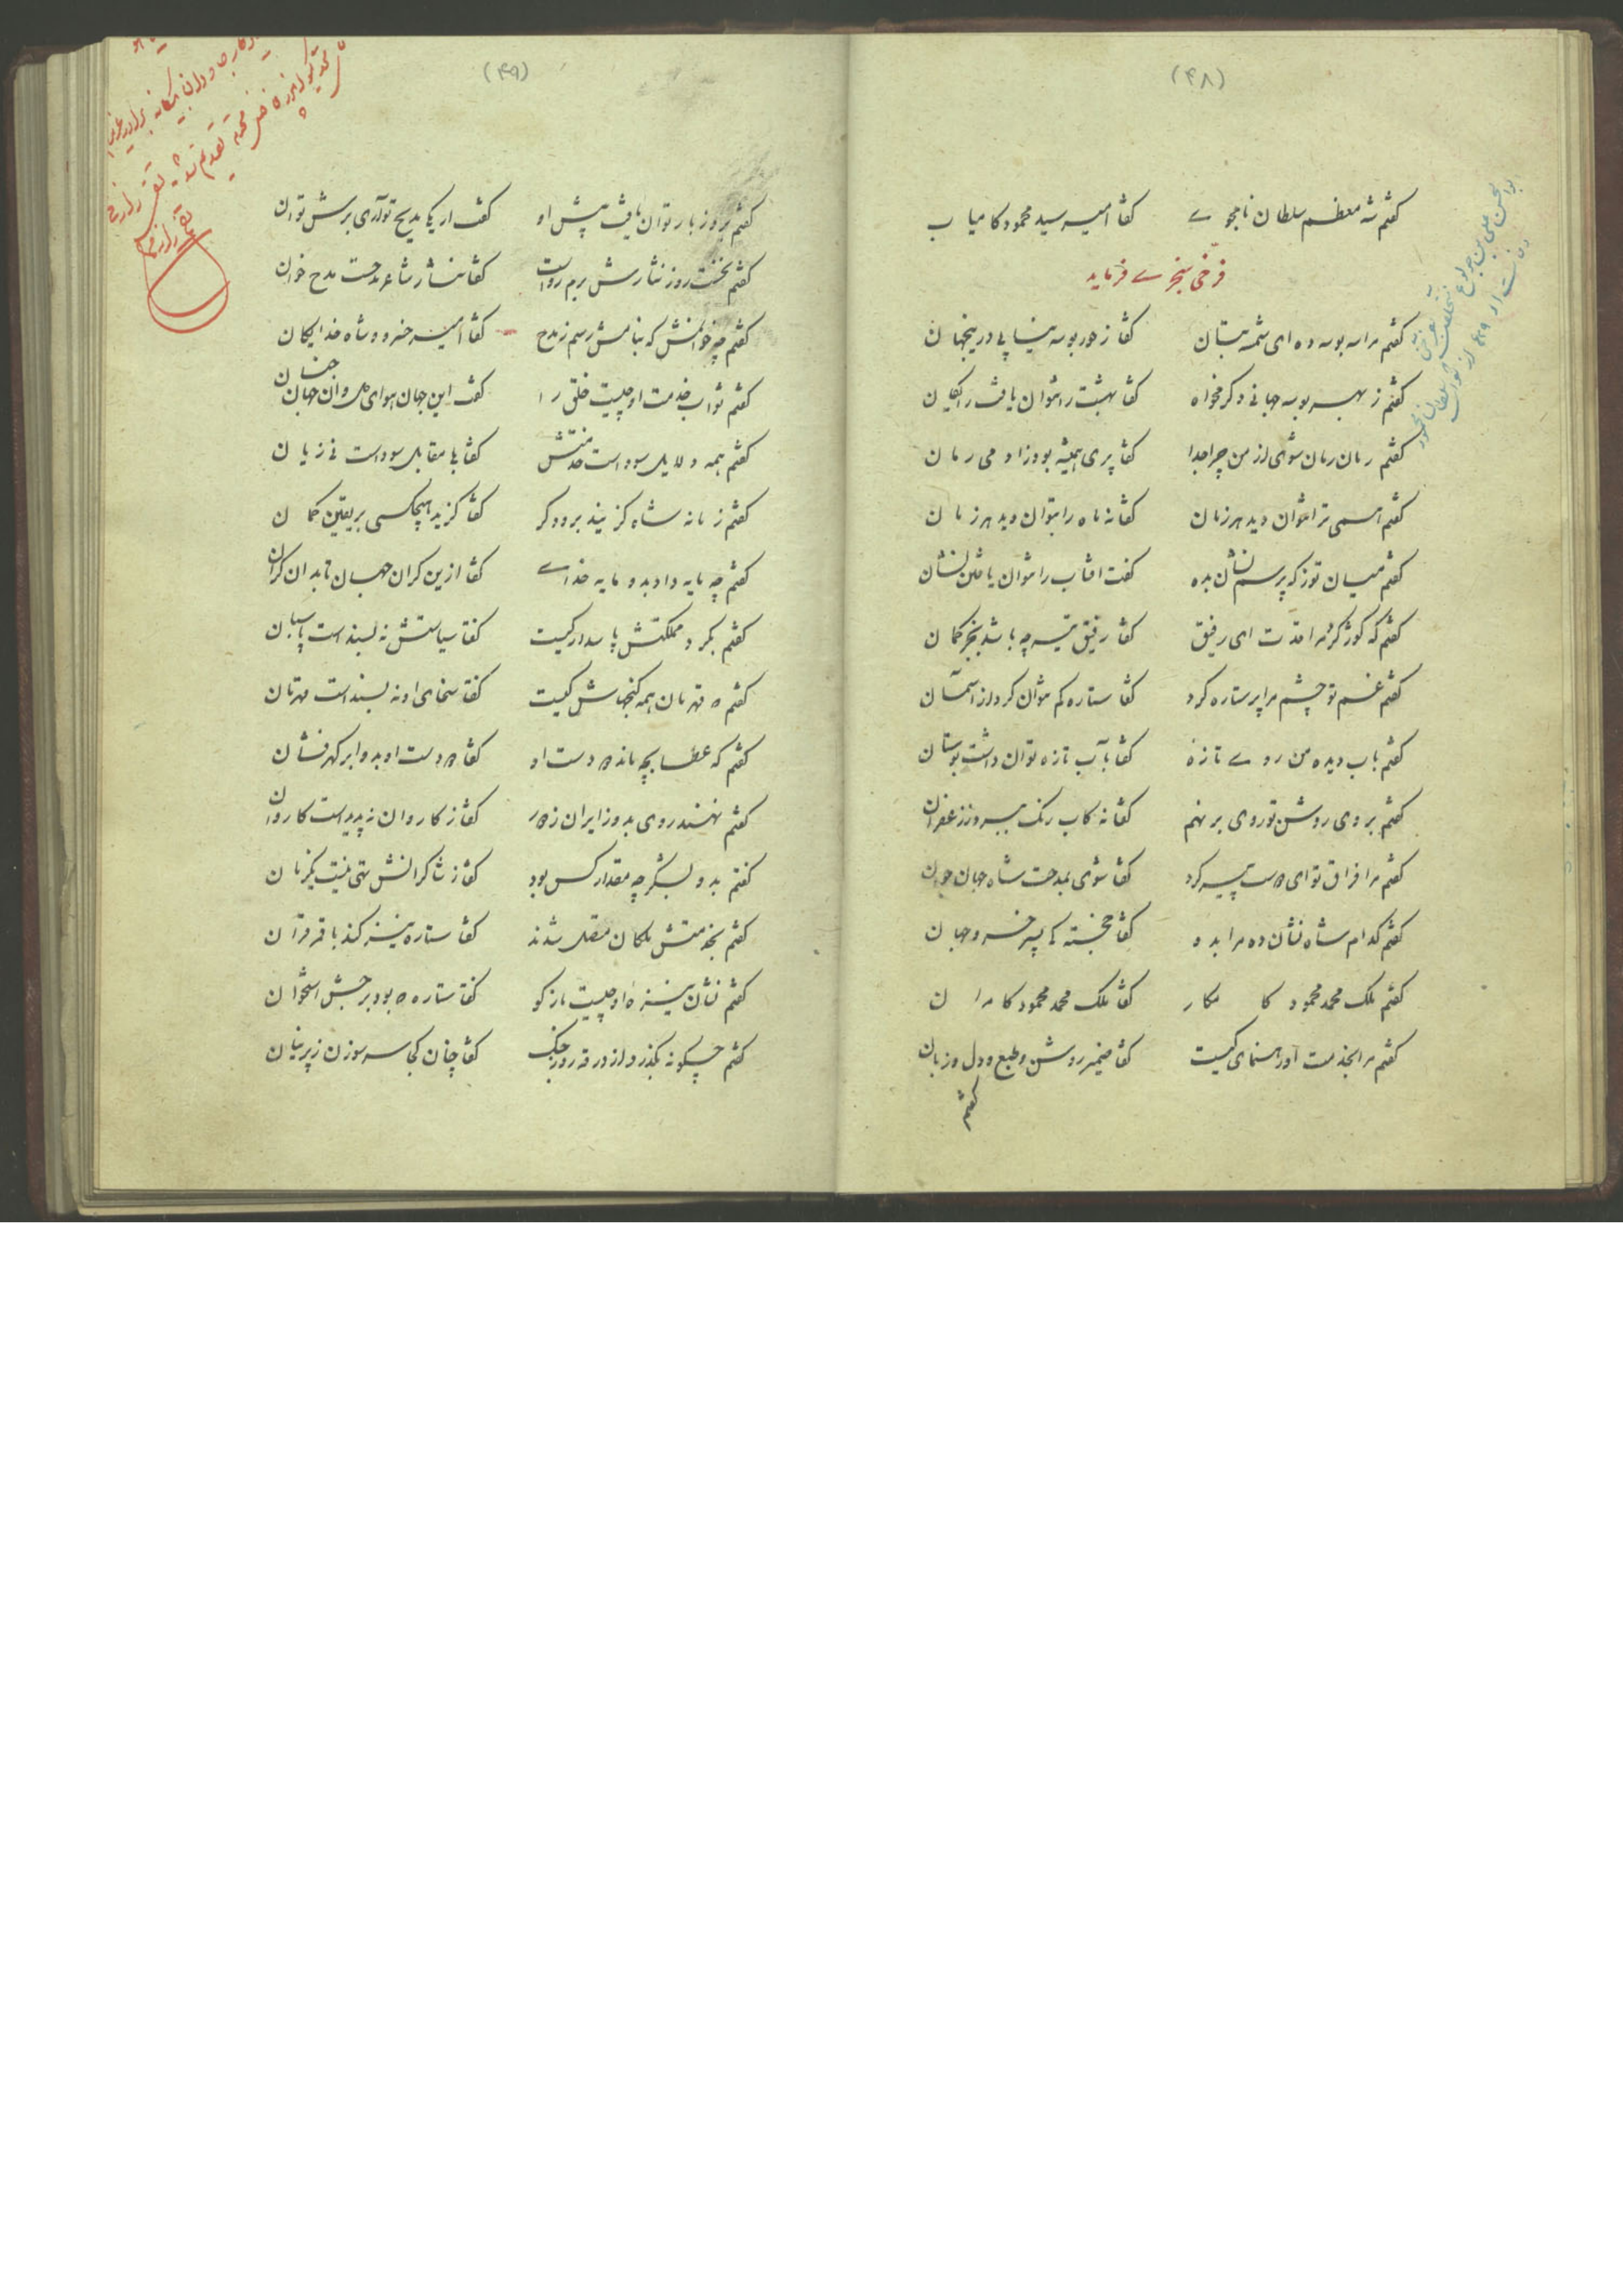 (۴۸)
گفتم شه معظم سلطان نامجوے گفتا امیر سید محمود کامیاب
فرّخی سنجرے فرماید
گفتم مرا سه بوسه ده ای شمسه بتان گفتا ز حور بوسه نیابی درینجهان
گفتم ز بهر بوسه جهانی دگر مخواه گفتا بهشت را نتوان یافت رایکان
گفتم رمان رمان شوی از من چرا جدا گفتا پری همیشه بود زادمی رمان
گفتم همی ترا نتوان دید هر زمان گفتا نه ماه را بتوان دید هر زمان
گفتم میان تو ز که پرسم نشان بده گفت افتاب را نتوان یافتن نشان
گفتم که کوژ کرد مرا قدّت ای رفیق گفتا رفیق تیر چه باشد بجز کمان
گفتم غم تو چشم مرا پر ستاره کرد گفتا ستاره کم نتوان کرد از آسمان
گفتم باب دیده من روے تازه گفتا بآب تازه توان داشت بوستان
گفتم بروی روشن تو روی بر نهم گفتا نه کاب رنک ببرد ز زعفران
گفتم مرا فراق تو ای دوست پیر کرد گفتا شوی بمدحت شاه جهان جوان
گفتم کدام شاه نشان ده مرا بدو گفتا خجسته پی پسر خسرو جهان
گفتم ملک محمد محمود کامکار گفتا ملک محمد محمود کامران
گفتم مرا بخدمت او رهنمای کیست گفتا ضمیر روشن و طبع و دل و زبان
گفتم
(۴۹)
گفتم بروز بار توان یافت پیش او گفت ار یکی مدیح تو آری برش توان
گفتم نخست روز نثارش برم رواست گفتا نثار شاعر مدحست مدح خوان
گفتم چه خوانمش که بنامش رسم ز مدح گفتا امیر و خسرو و شاه خدایکان
گفتم ثواب خدمت او چیست خلق را گفت این جهان هوای دل و آن جهان جنان
گفتم همه دلایل سود است خدمتش گفتا بلی مقابل سود است نی زیان
گفتم زمانه شاه کزیند برو دکر گفتا کزید هیچکسی بر یقین کمان
گفتم چه مایه داد بدو مایه خداے گفتا ازین کران جهان تا بدان کران
گفتم بکرد مملکتش پاسدار کیست گفتا سیاستش نه بسند است پاسبان
گفتم قهرمان همه کنجهاش کیست گفتا سخای او نه بسند است قهرمان
گفتم که عطا بچه ماند دو دست او گفتا دو دست او بدو ابر کهرفشان
گفتم نهند روی بدو زایران ز دور گفتا ز کاروان نه پدید است کاروان
گفتم بدو بشکر چه مقدار کس بود گفتا ز شاکرانش تهی نیست یکزمان
گفتم بخدمتش ملکان متصل شدند گفتا ستاره نیز کند با قمر قران
گفتم نشان نیزه او چیست بازکو گفتا ستاره بود برجش استخوان
گفتم چگونه بگذرد از درقه روز جنک گفتا چنان کجا سر سوزن ز پرنیان